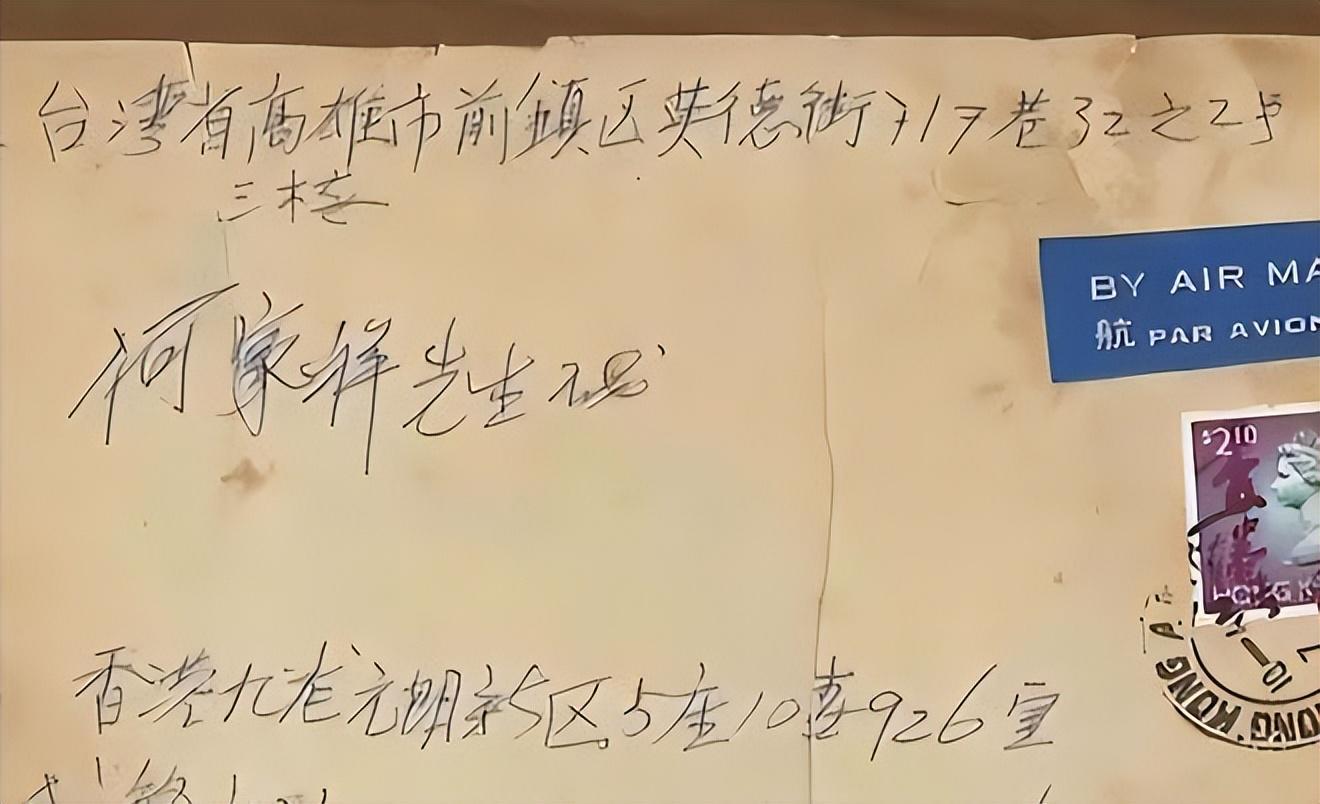 台湾省高雄市前鎮区英德街717巷32之2号
三楼
BY AIR MA
航 PAR AVION
何家祥先生
$210
HONG K
香港九龙元朗新区5座10喜926室
HONG KONG